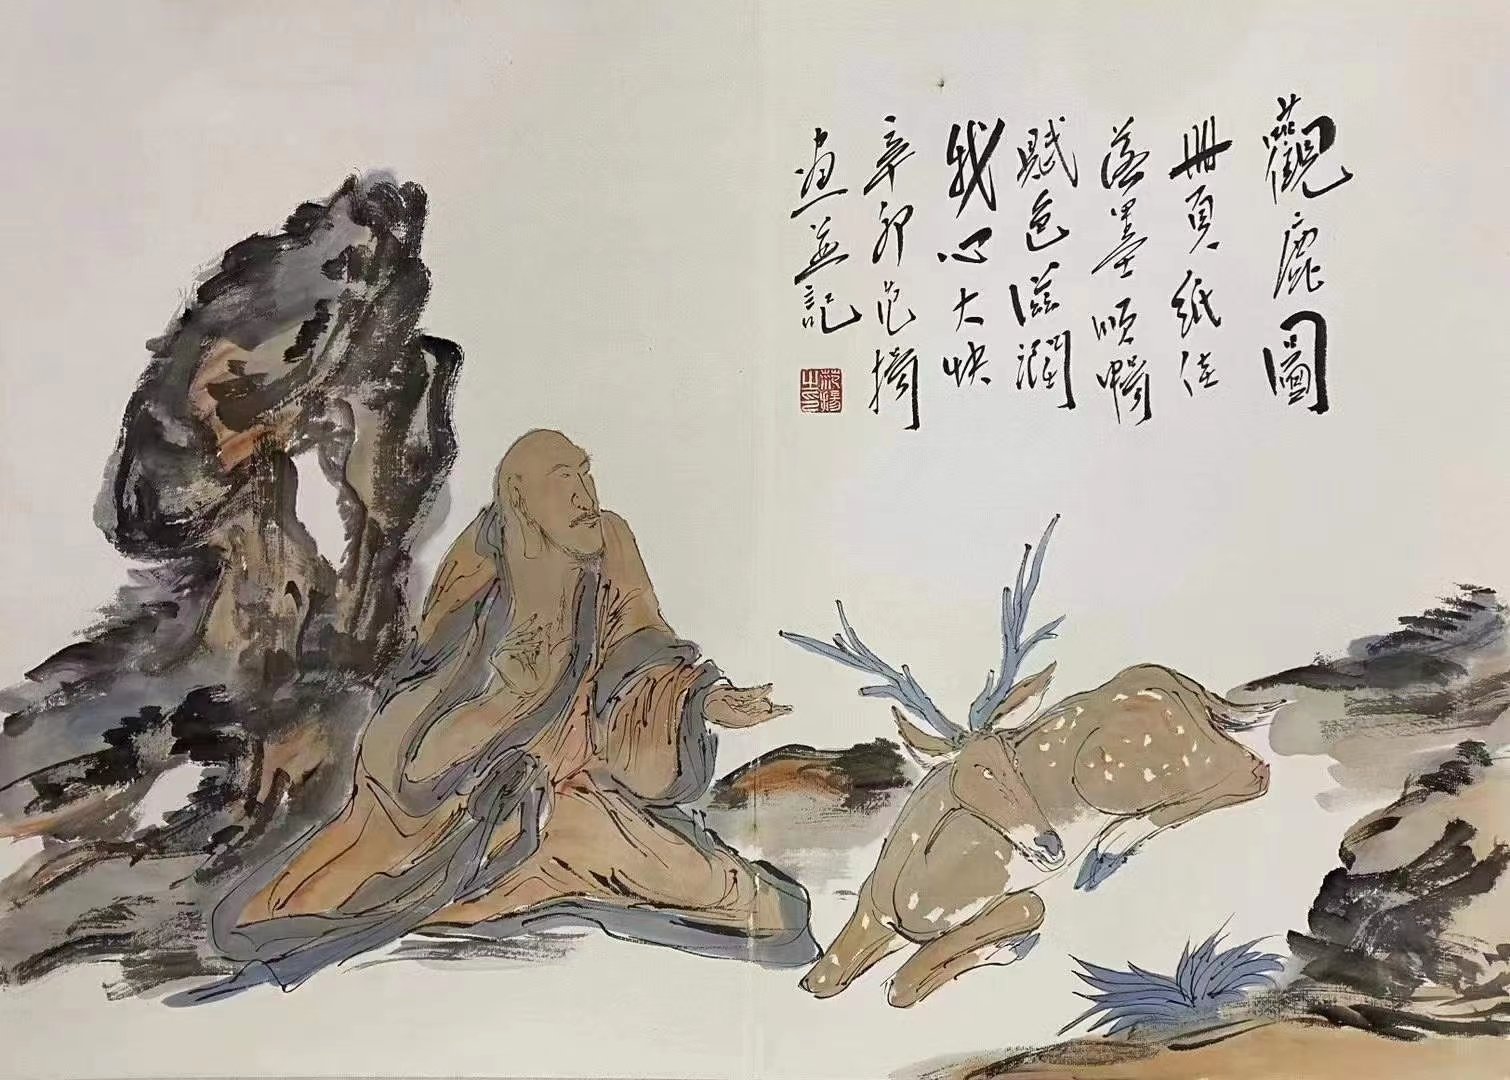 觀鹿圖
冊頁紙佳
落墨順暢
賦色滋潤
我心大快
辛卯范揚
畫並記
范揚之印